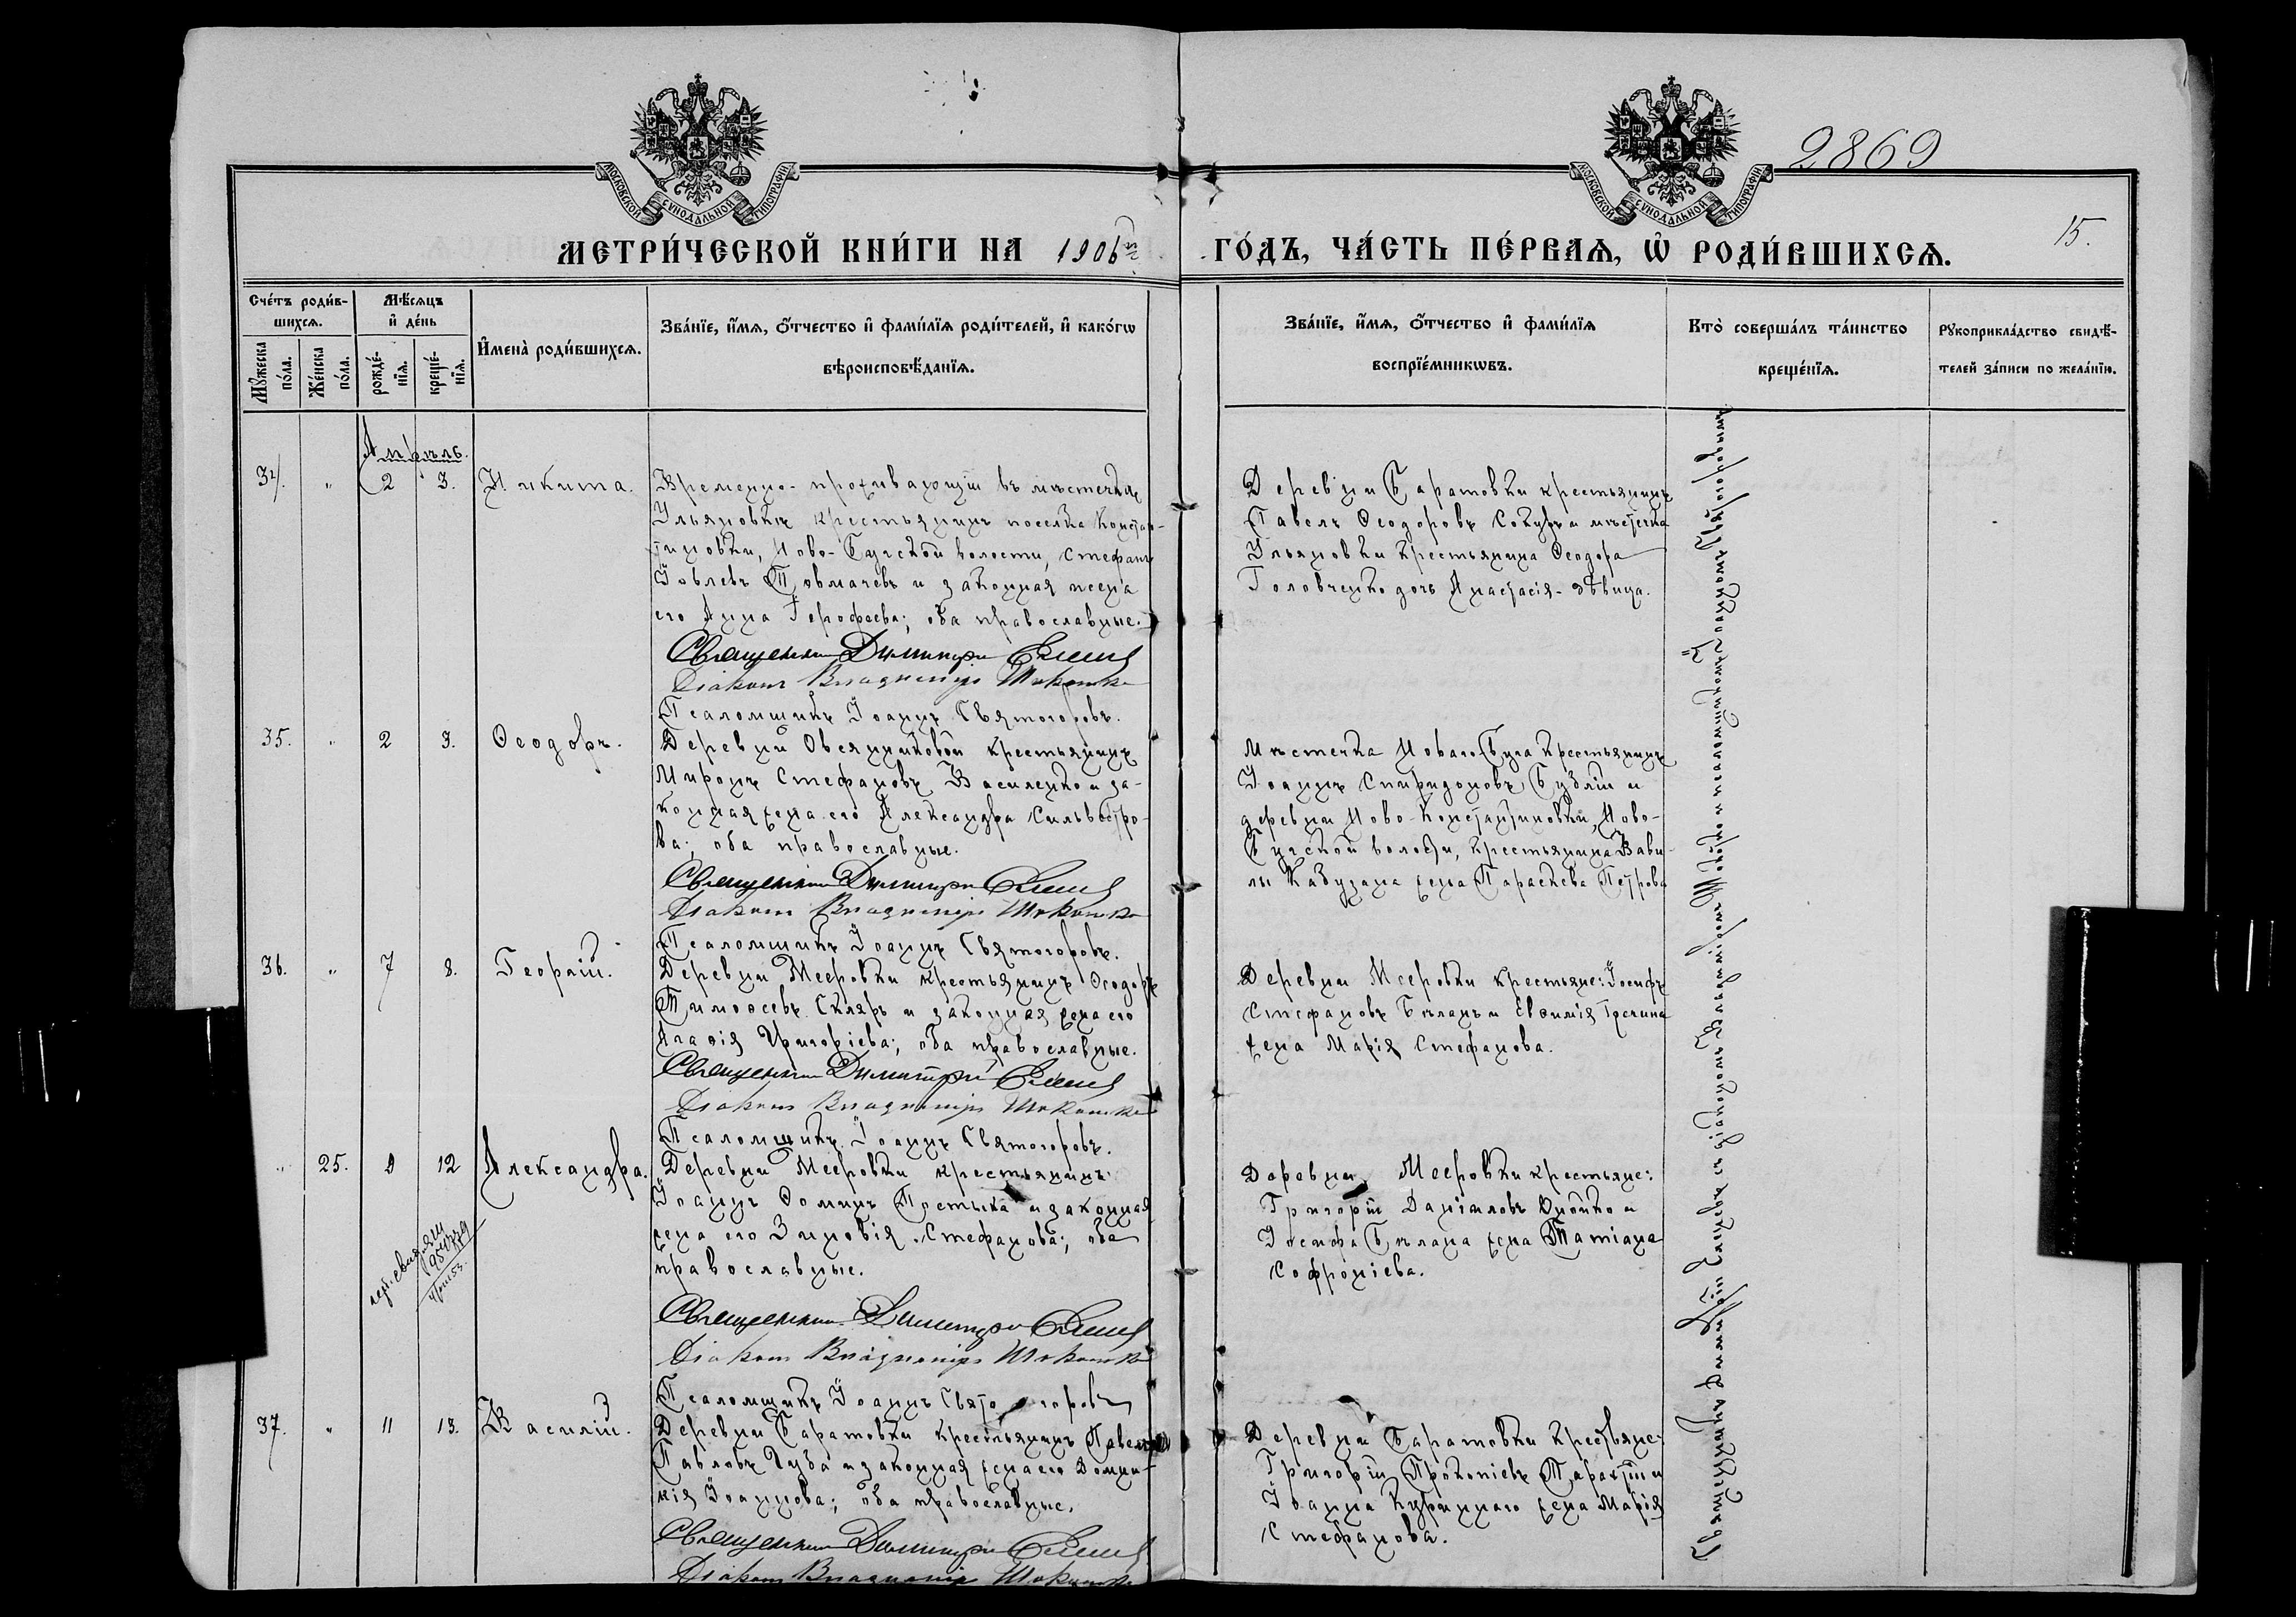 2869
15.
МОСКОВСКОЙ СѴНОДАЛЬНОЙ ТИПОГРАФІИ
МОСКОВСКОЙ СѴНОДАЛЬНОЙ ТИПОГРАФІИ
МЕТРИ́ЧЕСКОЙ КНИ́ГИ НА 1906й ГО́ДЪ, ЧА́СТЬ ПЕ́РВАѦ, Ѡ҆ РОДИ́ВШИХСѦ.
Сче́тъ роди́в-
шихсѧ.
Мѣ́сѧцъ
и҆ де́нь
Мꙋ́жеска
по́ла.
Же́нска
по́ла.
рожде́-
нїѧ.
креще́-
нїѧ.
И҆мена̀ роди́вшихсѧ.
Зва́нїе, и҆́мѧ, ѻ҆́тчество и҆ фами́лїѧ роди́телей, и҆ како́гѡ
вѣроисповѣ́данїѧ.
Зва́нїе, и҆́мѧ, ѻ҆́тчество и҆ фами́лїѧ
воспрїе́мникѡвъ.
Кто̀ соверша́лъ та́инство
креще́нїѧ.
Рꙋкоприкла́дство свидѣ́-
телей за́писи по жела́нїю.
Апрѣль.
34. " 2 3. Никита.
Временно-проживающій въ мѣстечкѣ
Ульяновкѣ крестьянинъ поселка Констан-
тиновки, Ново-Бугской волости, Стефанъ
Іовлевъ Товмачевъ и законная жена
его Анна Дорофеева; оба православные.
Священникъ Димитрій
Діаконъ Владиміръ
Псаломщикъ Іоаннъ Святогоровъ.
Деревни Баратовки крестьянинъ
Павелъ Ѳеодоровъ Сокуръ и мѣстечка
Ульяновки крестьянина Ѳеодора
Головченко дочь Анастасія-дѣвица.
35. " 2 3. Ѳеодоръ.
Деревни Овсянниковой крестьянинъ
Миронъ Стефановъ Василенко и за-
конная жена его Александра Сильвестро-
ва; оба православные.
Священникъ Димитрій
Діаконъ Владиміръ
Псаломщикъ Іоаннъ Святогоровъ.
Мѣстечка Новаго Буга крестьянинъ
Іоаннъ Спиридоновъ Бублій и
деревни Ново-Константиновки, Ново-
Бугской волости, крестьянина Вави-
лы Кавузана жена Параскева Петрова
36. " 7 8. Георгій.
Деревни Мееровки крестьянинъ Ѳеодоръ
Тимоѳеевъ Скляръ и законная жена его
Агаѳія Григоріева; оба православные.
Священникъ Димитрій
Діаконъ Владиміръ
Псаломщикъ Іоаннъ Святогоровъ.
Деревни Мееровки крестьяне: Іосифъ
Стефановъ Бѣланъ и Евѳимія Гречина
жена Марія Стефанова.
" 25. 9 12 Александра.
Деревни Мееровки крестьянинъ
Іоаннъ Ѳоминъ Постыка и законная
жена его Зиновія Стефанова; оба
православные.
Священникъ Димитрій
Діаконъ Владиміръ
Псаломщикъ Іоаннъ Святогоровъ
Деревни Мееровки крестьяне:
Григорій Даніиловъ Дыйко и
Іосифа Бѣлана жена Татіана
Софроніева.
37. " 11 13. Василій.
Деревни Баратовки крестьянинъ Павелъ
Павловъ Чуба и законная жена его Домни-
кія Іоаннова; оба православные.
Священникъ Димитрій
Діаконъ Владиміръ
Деревни Баратовки крестьяне:
Григорій Прокопіевъ Таранъ и
Іоанна Куринного жена Марія
Стефанова.
Священникъ Димитрій съ діакономъ Владиміромъ и псаломщикомъ Іоанномъ Святогоровымъ